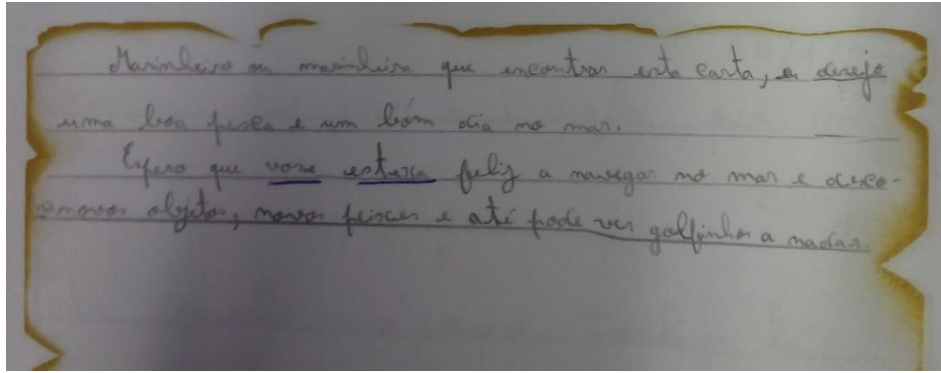 Marinheiro ou marinheira que encontrar esta carta, desejo
uma boa pesca e um bom dia no mar.
Espero que vose estexa feliz a navegar no mar e
novos objetos, novos peixes e até pode ver golfinhos a nadar.